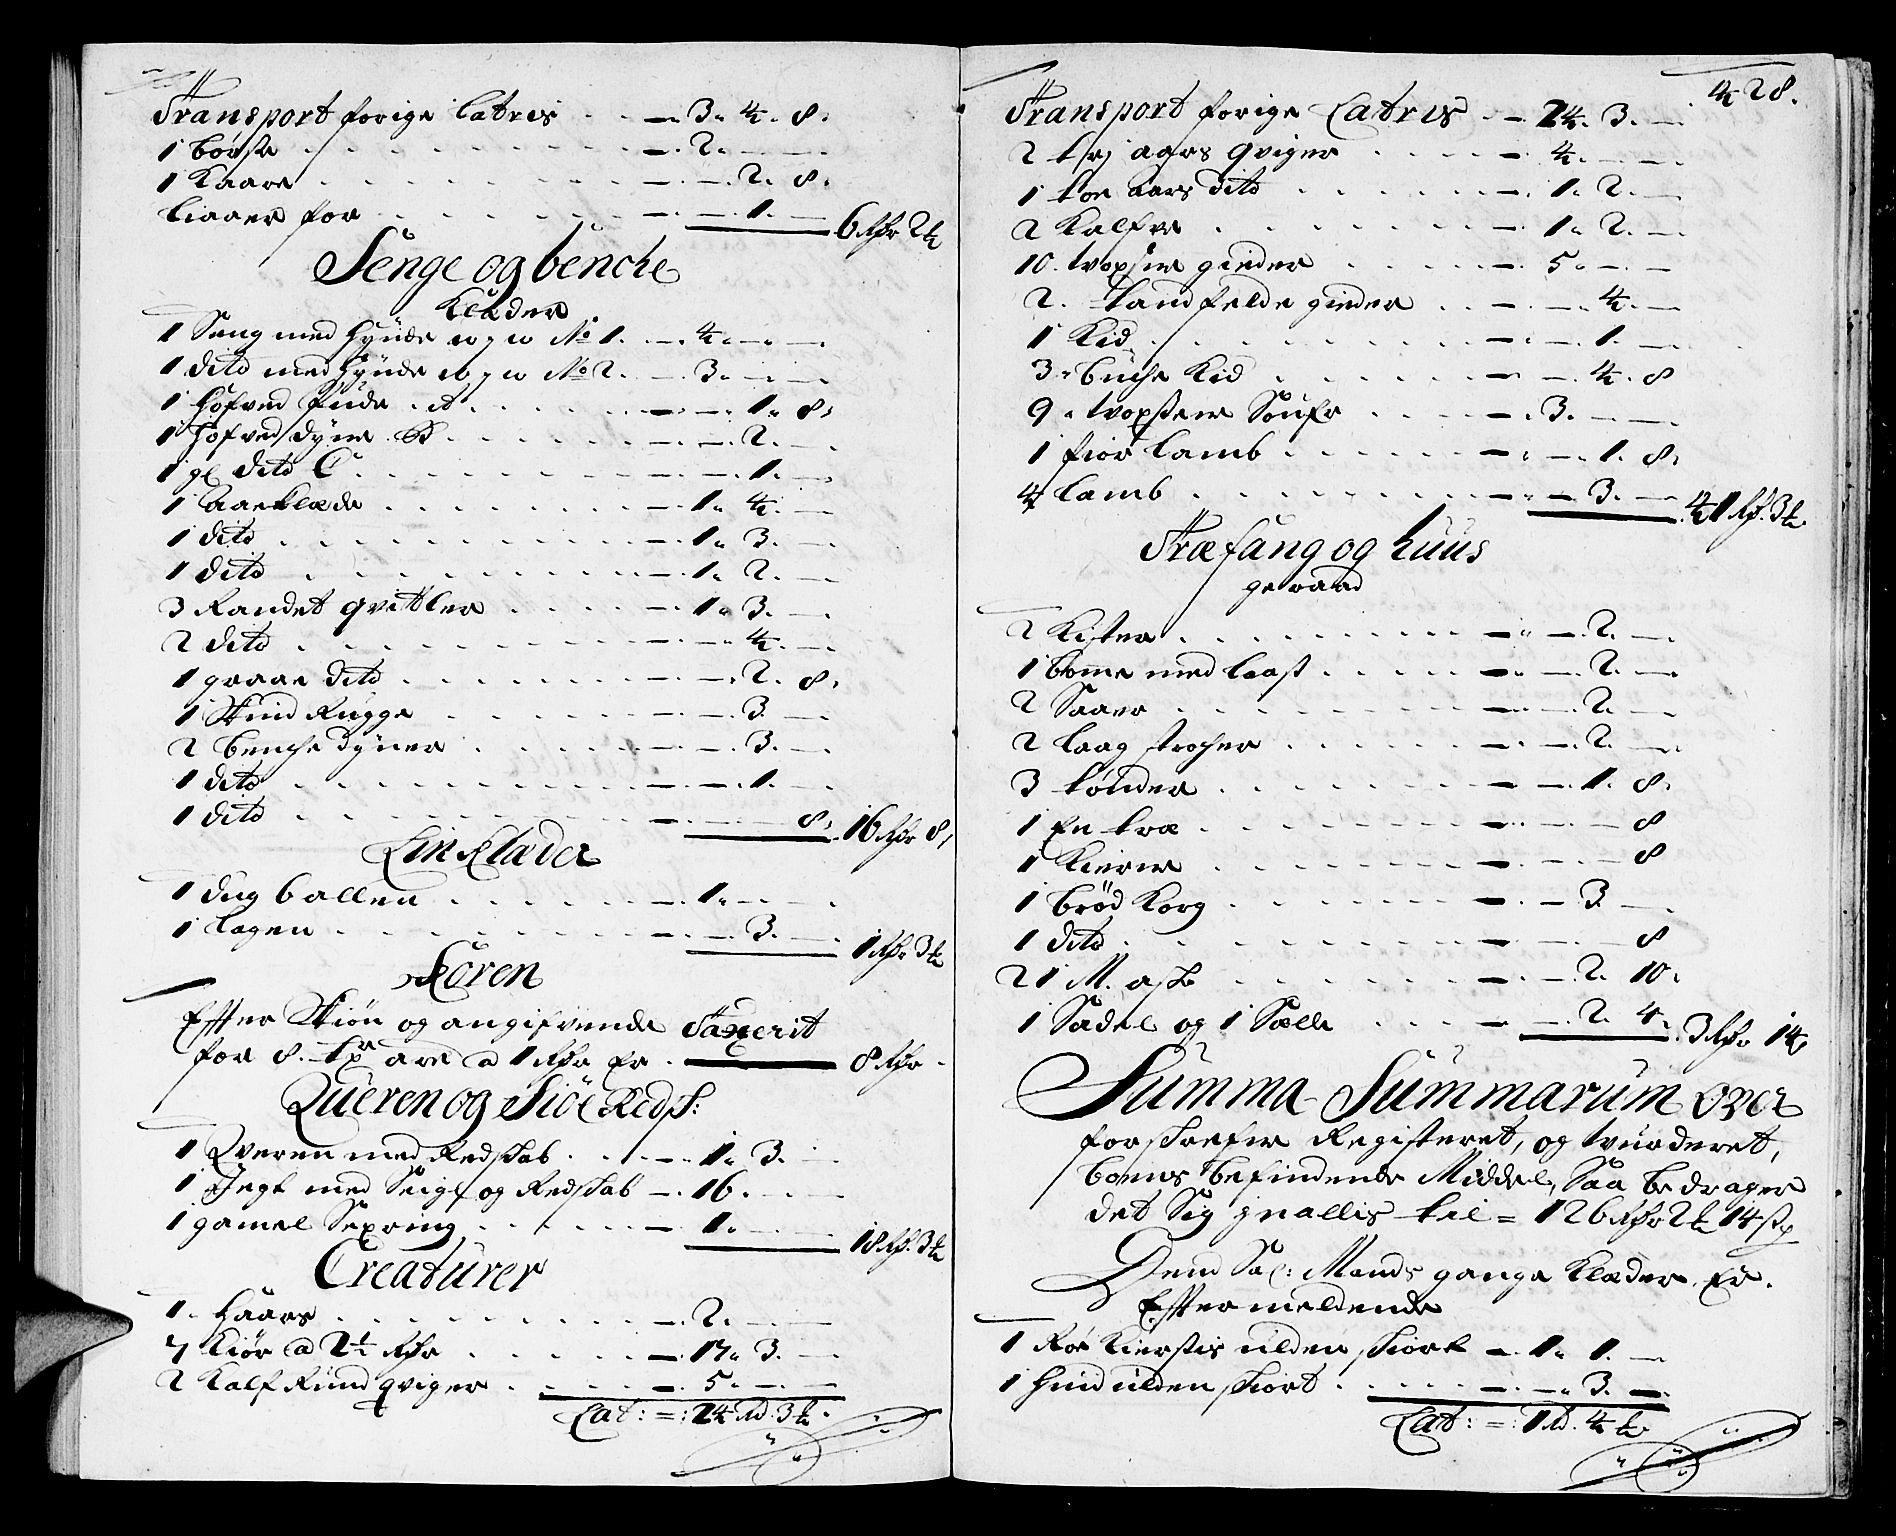 Transport forige Latris - 3. 4. 8.
1 børse - 2. - -
1 Kaare - - 2. 8.
Liaaer for - - 1. - 6 Rdr 2 k
Senge og bencke
Klæder
1 Seng med Hynde No 1. - 4. - -
1 dito med Hynde No 2. - 3. - -
1 Hofved Pude A - - 1. 8.
1 Hofved dyne B - - 2. -
1 gl dito C - - 1. -
1 Aaeklæde - 1. 4. -
1 dito - 1. 3. -
1 dito - 1. 2. -
3 Randet qvitler - 1. 3. -
2 dito - - 4. -
1 graae dito - - 2. 8.
1 Skind Rugge - - 3. -
2 bencke dyner - - 3. -
1 dito - - 1. -
1 dito - - - 8. 16 Rdr 8.
Linklæder
1 dug ballen - 1. - -
1 Lagen - - 3. - 1 Rdr 3 k
Koren
Efter Skiøn og angifvende Taxerit
for 8. tr are a 1 Rdr Er - 8 Rdr -
Queren og Siøe Redsk:
1 Qveren med Redskab - 1. 3. -
1 Jegt med Seigl og Redskab - 16. - -
1 gamel Sexring - 1. - - 18 Rdr. 3 k
Creaturer
1. Haars - 2. - -
7 Kiør a 2½ Rdr - 17. 3. -
2 Kalf Kund qviger - 5. - -
Lat: =: 24 Rd. 3 k.
428.
Transport forige Latris - 24. 3. -
2 trj aars qviger - 4. - -
1 toe aars dito - 1. 2. -
2 Kalfve - 1. 2. -
10. voxsen gieder - 5. - -
2. tandfelde gieder - - 4. -
1 Kid - - 1. -
3. bucke Kid - - 4. 8
9. voxsene Soufr - 3. - -
1 fior Lamb - - 1. 8.
4 Lamb - - 3. - 41 Rd. 3 k.
Træfang og huus
geraad
2 Kister - - 2. -
1 bomme med laast - - 2. -
2 Saaer - - 2. -
2 laag strocher - - 2. -
3 tønder - - 1. 8.
1 En træ - - - 8
1 Kierne - - - 8
1 brød Korg - - 3 -
1 dito - - - 8
21 M. aske - - 2. 10.
1 Sadel og 1 Sælle - - 2. 4. 3 Rdr 14
Summa Summarum over
forskrefne Registeret, og vurderet,
boens befindende Middel, Saa bedrager
det Sig gnallis til = 126 Rdr 2 k 14 sk
Dend Sal: Mands gange Klæder Er.
Eftermeldende
1 Rø Kierstis ulden skiort - 1. 1. -
1 Hvid ulden skiort - - 3. -
Lat: =: 1 Rd. 4 k.